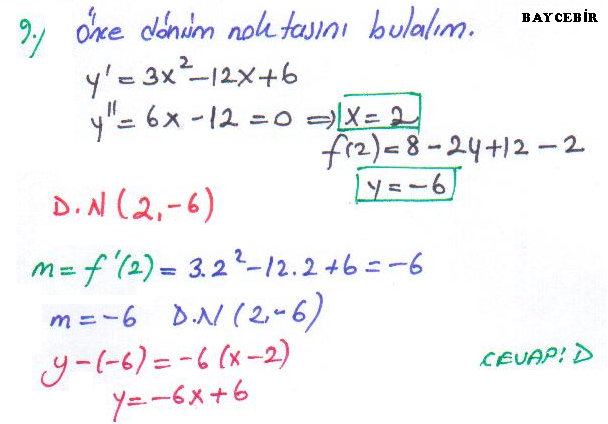 BAYCEBİR
9.) Önce dönüm noktasını bulalım.
y' = 3x² - 12x + 6
y'' = 6x - 12 = 0 ⇒ x = 2
f(2) = 8 - 24 + 12 - 2
y = -6
D.N (2,-6)
m = f'(2) = 3.2² - 12.2 + 6 = -6
m = -6 D.N (2,-6)
y - (-6) = -6 (x - 2)
y = -6x + 6
CEVAP: D